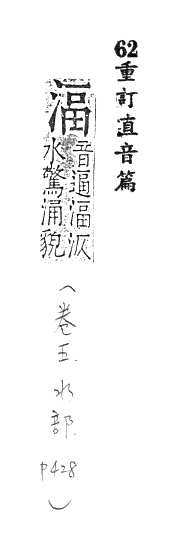 62重訂直音篇
湢
音逼湢㳁
水驚涌貌
（卷五水部P428）